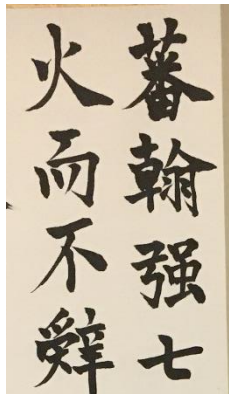 蕃翰强七
火而不辤